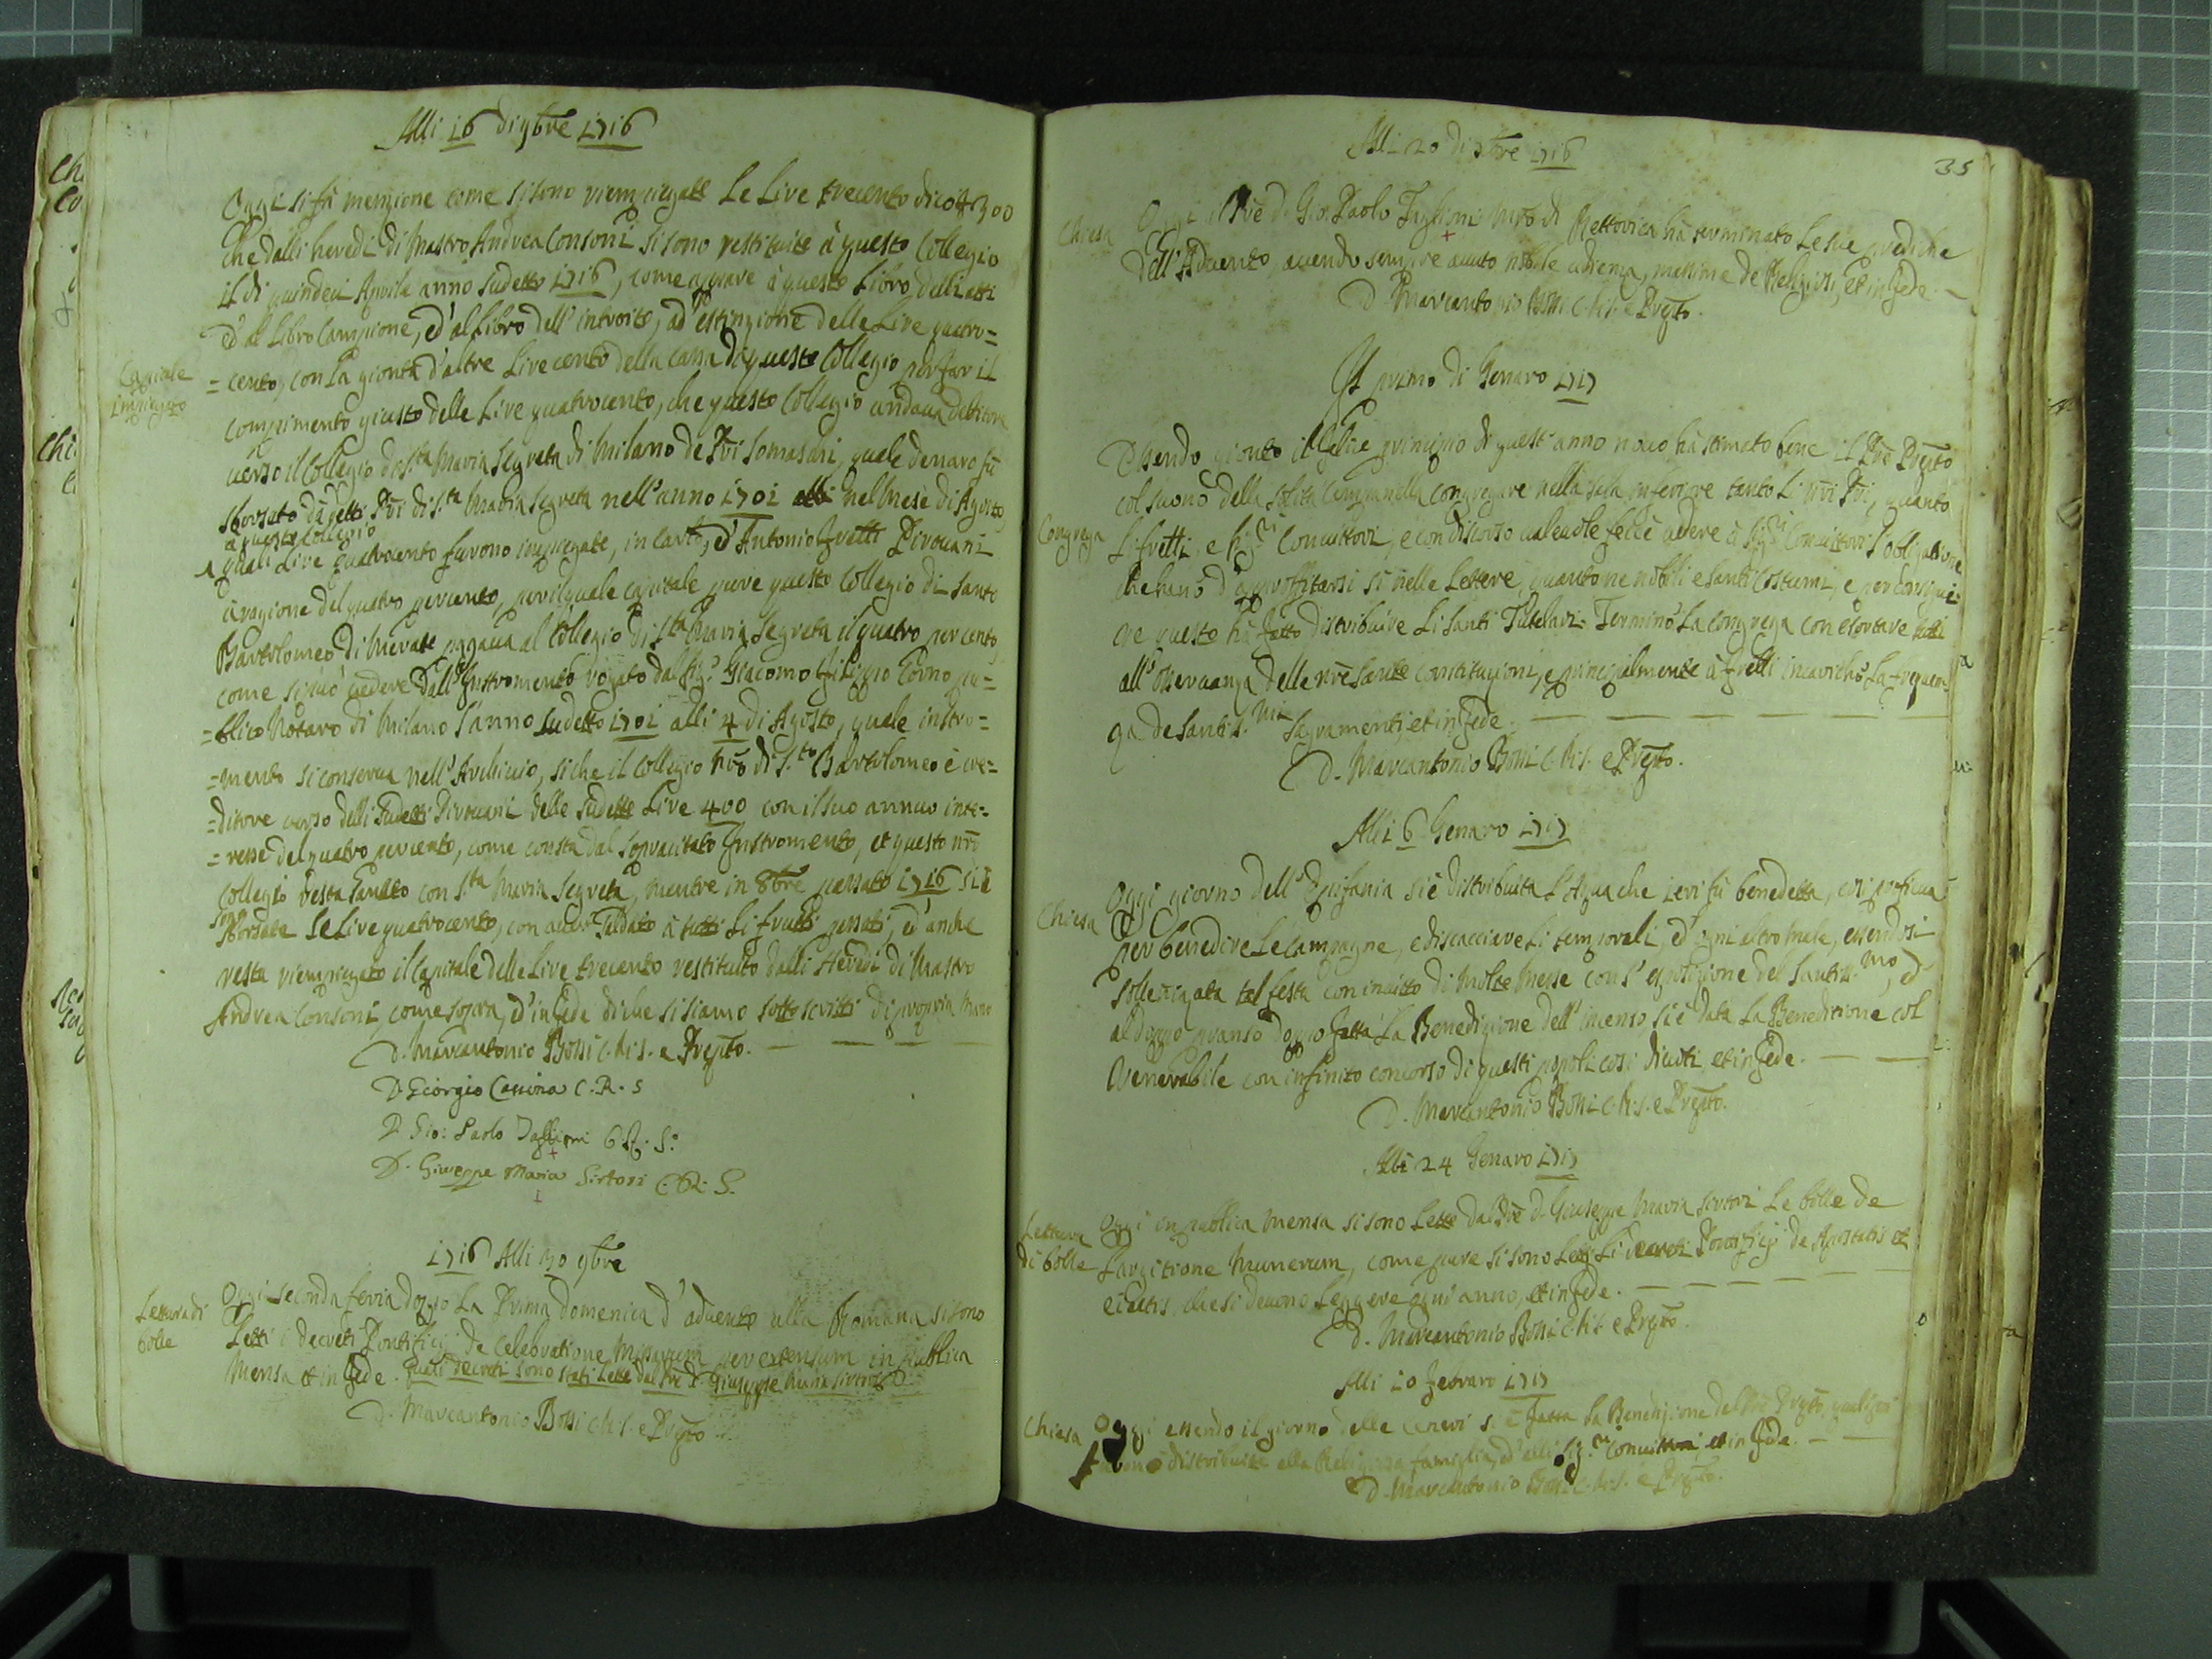 Alli 16 di 9bre 1716
Oggi si fà menzione come si sono riempiegate Le Lire trecento dico # 300
Che dalli heredi di Mastro Andrea Consoni si sono restituite à questo Collegio
il di quindeci Aprile anno sudetto 1716, come appare à questo Libro delli atti
ed' al Libro Campione, ed' al Libro dell' introito, ad' estinzione delle Lire quatro=
Capitale
impiegato
=cento, con La gionta d'altre Lire cento della cassa di questo Collegio per far il
compimento giusto delle Lire quatrocento, che questo Collegio andaua debitore
uerso il Collegio di S.ta Maria Segreta di Milano de Pri Somaschi, quale denaro fù
sborsato da detti Pri di S.ta Maria Segreta nell'anno 1701 nel Mese di Agosto
à questo Collegio
quali Lire quatrocento furono impiegate, in Antonio frelli Pirouani
à ragione del quatro per cento, per il quale capitale pure questo Collegio di Santo
Bartolomeo di Merate pagaua al Collegio di S.ta Maria Segreta il quatro per cento
come si può uedere dall' Instromento rogato dal Sig.r Giacomo Filippo Corno pu=
=blico Notaro di Milano l'anno sudetto 1701 alli 4 di Agosto, quale instro=
=mento si conserua nell'Archiuio, siche il Collegio nro di S.to Bartolomeo è cre=
=ditore uerso delli sudetti Pirouani delle sudette Lire 400 con il suo annuo inte=
=resse del quatro per cento, come consta dal sopracitato Instromento, et questo nro
Collegio resta saldato con S.ta Maria Segreta, mentre in 8bre passato 1716 si
sono
sborsate Le Lire quatrocento, con auer saldato à tutti Li frutti passati, ed' anche
resta riempiegato il Capitale delle Lire trecento restituito dalli Heredi di Mastro
Andrea Consoni, come sopra, ed' in fede di che si siamo sotto scritti di propria Mano
D. Marcantonio Bossi C.R.S. e Prepto.
D. Giorgio Cassina C.R.S
D. Gio: Paolo Taglioni C.R.S.
D. Giuseppe Maria Sirtori C.R.S.
1716 Alli 30 9bre
Lettura di
bolle
Oggi seconda feria doppo La Prima Domenica d' aduento alla Romana si sono
Letti i decreti Pontificij de Celebratione Missarum per extensum in publica
Mensa et in fede. Quali decreti sono stati Letti dal Pre D. Giuseppe Maria Sirtori
D. Marcantonio Bossi C.R.S. e Prepto
35
Alli 20 di Xbre 1716
Chiesa
Oggi il Pre D. Gio. Paolo Taglioni Mro di Rettorica hà terminato Le sue prediche
dell'Aduento, auendo sempre auuto nobile udienza, massime de Religiosi, et in fede.
D. Marcantonio Bossi C.R.S. e Prepto.
Il primo di Genaro 1717
Essendo gionto il felice principio di quest'anno nouo hà stimato bene il Pre Prepto
col suono della solita Campanella congregare nella sala inferiore tanto Li nri Pri, quanto
Congrega
Li frelli, e Sig.ri Conuittori, e con discorso ualeuole fece uedere à Sig.ri Conuittori l'obligatione
che hano d'approffitarsi si nelle Lettere, quanto ne nobili e santi Costumi, e per conseguire
questo hà fatto distribuire Li Santi Tutelari. Terminò La congrega con esortare tutti
all'Osseruanza delle nre Sante constituzioni, e principalmente à frelli incaricò La frequen=
za de Santiss.mi Sagramenti, et in fede.
D. Marcantonio Bossi C.R.S. e Prepto.
Alli 6 Genaro 1717
Chiesa
Oggi giorno dell'Epifania si è distribuita l'Aqua che ieri fù benedetta, così proficua
per benedire Le Campagne, e discacciare Li temporali, ed' ogni altro male, essendosi
sollenizata tal festa con inuito di molte Messe con l'espositione del Santiss.mo, ed
al doppo pranso doppo fatta La Benedizione dell'incenso si è data La Beneditione col
Venerabile con infinito concorso di questi popoli così diuoti, et in fede.
D. Marcantonio Bossi C.R.S. e Prepto.
Alli 24 Genaro 1717
Lettura
di bolle
Oggi in publica Mensa si sono Lette dal Pre D. Giuseppe Maria Sirtori Le bolle de
Largitione Munerum, come pure si sono Letti Li decreti Pontificij de Apostatis et
eiectis, che si deuono Leggere ogni anno, et in fede.
D. Marcantonio Bossi C.R.S. e Prepto.
Alli 10 Febraro 1717
Chiesa
Oggi essendo il giorno delle Ceneri s'è fatta La Benedizione dal Pre Prepto, quali poi
distribuite alla Religiosa famiglia, ed' alli Sig.ri Conuittori, et in fede.
D. Marcantonio Bossi C.R.S. e Prepto.